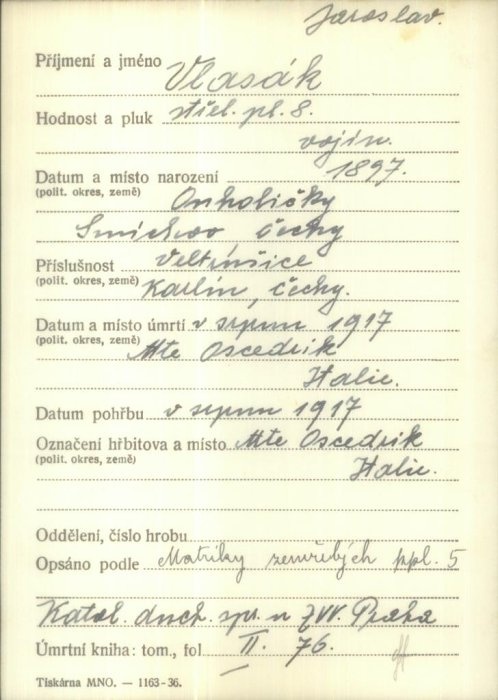 Jaroslav.
Příjmení a jméno Vlasák
Hodnost a pluk střel. pl. 8.
vojín.
Datum a místo narození 1897.
(polit. okres, země) Onholičky
Smíchov Čechy
Příslušnost Veltrušice
(polit. okres, země) Karlín, Čechy.
Datum a místo úmrtí v srpnu 1917
(polit. okres, země) Mte Oscedrik
Italie.
Datum pohřbu v srpnu 1917
Označení hřbitova a místo Mte Oscedrik
(polit. okres, země) Italie.
Oddělení, číslo hrobu
Opsáno podle Matriky zemřelých ppl. 5
Katol. duch. spr. u ZVV. Praha
Úmrtní kniha: tom., fol II. 76.
Tiskárna MNO. — 1163-36.